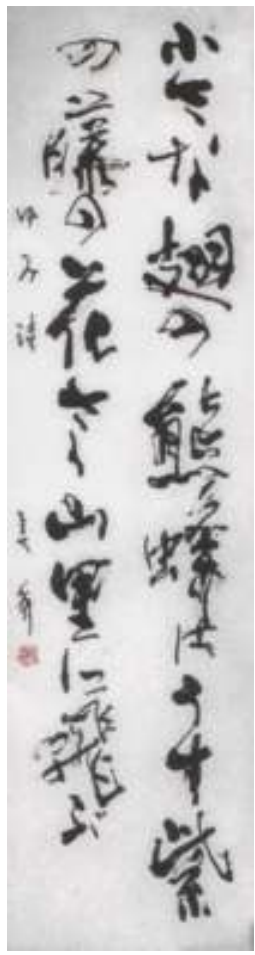 小さな翅の熊蜂はうす紫
の藤の花さく山里に飛ぶ